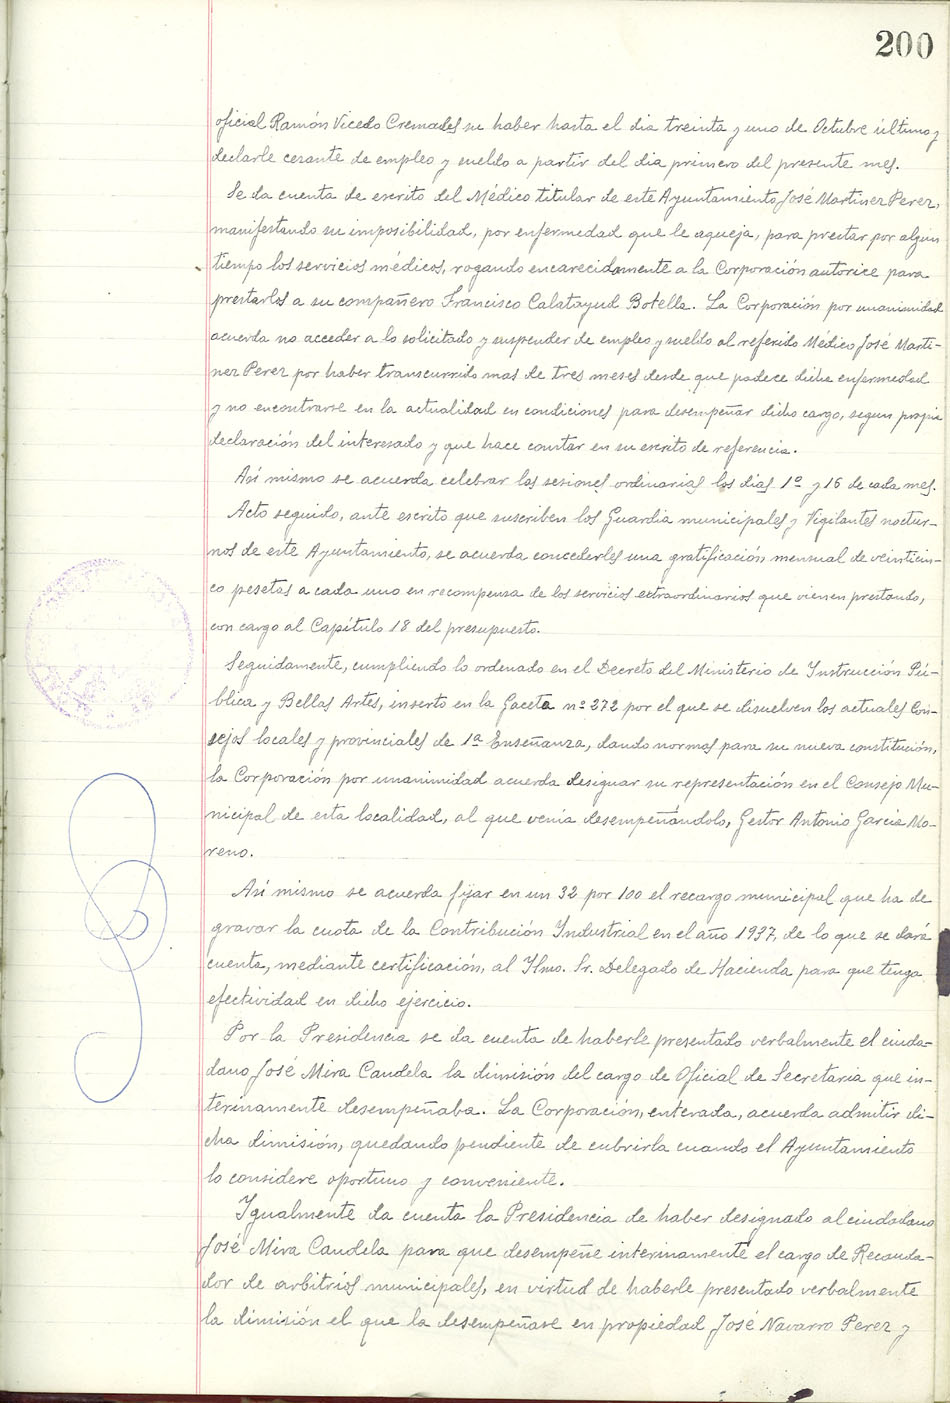 200
oficial Ramón Vicedo Cremades su haber hasta el dia treinta y uno de Octubre último y
declarle cesante de empleo y sueldo a partir del dia primero del presente mes.
Se da cuenta de escrito del Médico titular de este Ayuntamiento, José Martinez Perez,
manifestando su imposibilidad, por enfermedad que le aqueja, para prestar por algun
tiempo los servicios médicos, rogando encarecidamente a la Corporación autorice para
prestarlos a su compañero Francisco Calatayud Botella. La Corporación por unanimidad
acuerda no acceder a lo solicitado y suspender de empleo y sueldo al referido Médico José Marti-
nez Perez por haber transcurrido mas de tres meses desde que padece dicha enfermedad
y no encontrarse en la actualidad en condiciones para desempeñar dicho cargo, segun propia
declaración del interesado y que hace constar en su escrito de referencia.
Asi mismo se acuerda celebrar las sesiones ordinarias los dias 1º y 16 de cada mes.
Acto seguido, ante escrito que suscriben los Guardia municipales y Vigilantes noctur-
nos de este Ayuntamiento, se acuerda concederles una gratificación mensual de veinticin-
co pesetas a cada uno en recompensa de los servicios extraordinarios que vienen prestando,
con cargo al Capítulo 18 del presupuesto.
Seguidamente, cumpliendo lo ordenado en el Decreto del Ministerio de Instrucción Pú-
blica y Bellas Artes, inserto en la Gaceta nº 272 por el que se disuelven los actuales Con-
sejos locales y provinciales de 1ª Enseñanza, dando normas para su nueva constitución,
la Corporación por unanimidad acuerda designar su representación en el Consejo Mu-
nicipal de esta localidad, al que venia desempeñándolo, Gestor Antonio Garcia Mo-
reno.
Asi mismo se acuerda fijar en un 32 por 100 el recargo municipal que ha de
gravar la cuota de la Contribución Industrial en el año 1937, de lo que se dará
cuenta, mediante certificación, al Ylmo. Sr. Delegado de Hacienda para que tenga
efectividad en dicho ejercicio.
Por la Presidencia se da cuenta de haberle presentado verbalmente el ciuda-
dano José Mira Candela la dimisión del cargo de Oficial de Secretaria que in-
terinamente desempeñaba. La Corporación, enterada, acuerda admitir di-
cha dimisión, quedando pendiente de cubrirla cuando el Ayuntamiento
lo considere oportuno y conveniente.
Ygualmente da cuenta la Presidencia de haber designado al ciudadano
José Mira Candela para que desempeñe interinamente el cargo de Recauda-
dor de arbitrios municipales, en virtud de haberle presentado verbalmente
la dimisión el que la desempeñase en propiedad José Navarro Perez y